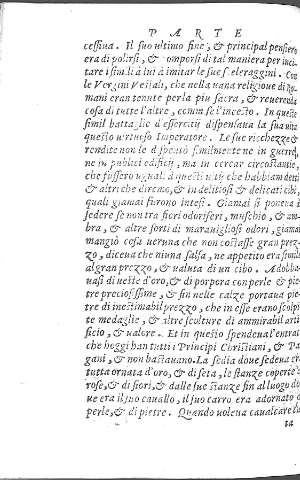 PARTE
cessiua. Il suo ultimo fine, & principal pensiero
era di polirsi, & comporsi di tal maniera per inci
tare i simili à lui à imitar le sue sceleraggini. Con
le Vergini Vestali, che nella uana religione di Ro
mani eran tenute per la piu sacra, & reuerenda
cosa di tutte l'altre, commesse l'incesto. In queste
simil battaglie d'esserciti dispensaua la sua uita
questo uirtuoso Imperatore. Le sue ricchezze &
rendite non le dispensò similmente ne in guerre,
ne in publici edificij, ma in cercar circostantie,
che fussero uguali à questi uitij che habbiam detti
& altri che diremo, & in delitiosi & delicati cibi,
quali giamai furono intesi. Giamai si poneua à
sedere se non tra fiori odoriferi, muschio, & am-
bra, & altre sorti di marauigliosi odori, giamai
mangiò cosa ueruna che non costasse gran prez-
zo, diceua che niuna salsa, ne appetito era simile
al gran prezzo, & ualuta di un cibo. Adobba-
uasi di ueste d'oro, & di porpora con perle & pie-
tre preciosissime, & fin nelle calze portaua pie-
tre di inestimabil prezzo, che in esse erano scolpi
te medaglie, & altre scolture di ammirabil arti
ficio, & ualore. Et in questo spendeua l'entrate
che hoggi han tutti i Principi Christiani, & Pa-
gani, & non bastauano. La sedia doue sedeua era
tutta ornata d'oro, & di seta, le stanze coperte di
rose, & di fiori, & dalle sue stanze fin al luogo do
ue era il suo cauallo, il suo carro era adornato di
perle, & di pietre. Quando uoleua caualcare sta
ta